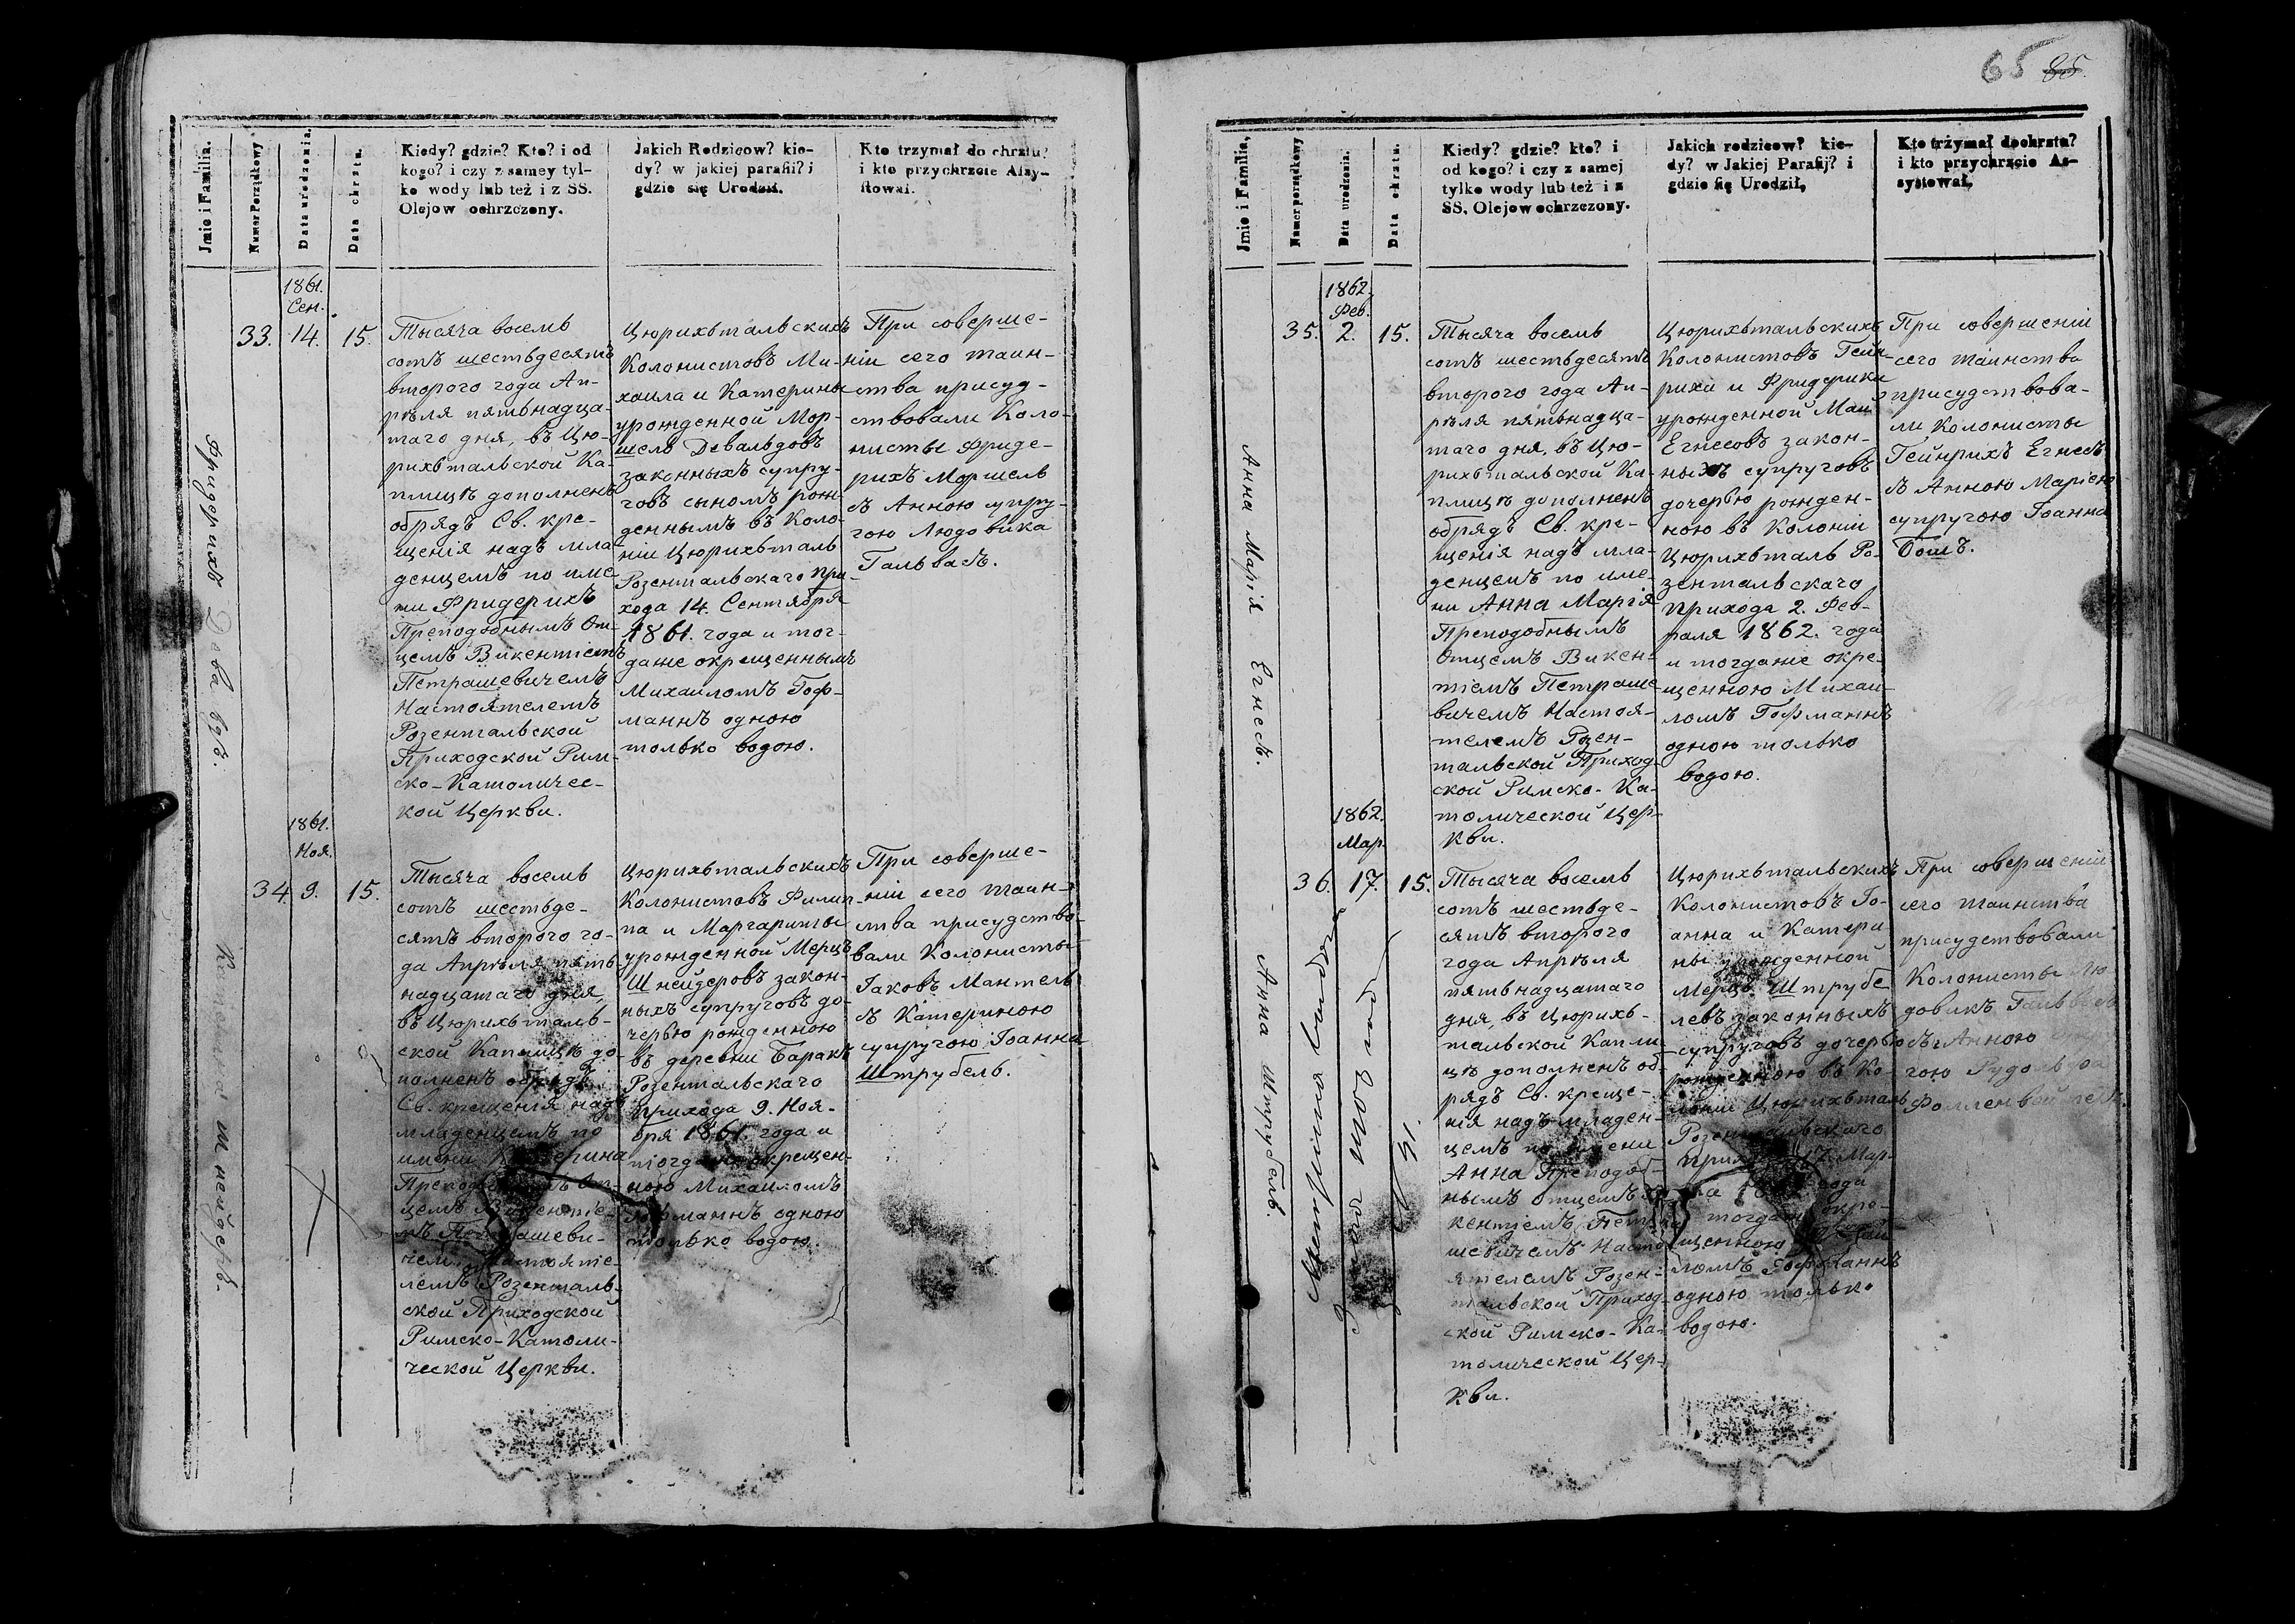 65 85.
Jmie i Familia.
Numer Porządkowy
Data urodzenia.
Data chrztu.
Kiedy? gdzie? Kto? i od
kogo? i czy z samey tyl-
ko wody lub też i z SS.
Olejow ochrzczony.
Jakich Rodzicow? kie-
dy? w jakiej parafii? i
gdzie się Urodził.
Kto trzymał do chrztu?
i kto przychrzcie Assy-
stował.
Фридерихъ Девальдъ.
1861.
Сен.
33. 14. 15.
Тысяча восемь
сотъ шестьдесятъ
втораго года Ап-
рѣля пятьнадца-
таго дня, въ Цю-
рихтальской Ка-
плицѣ дополненъ
обрядъ Св. кре-
щенія надъ мла-
денцемъ по име-
ни Фридерихъ
Преподобнымъ От-
цемъ Викентіемъ
Петрашевичемъ
Настоятелемъ
Розентальской
Приходской Рим-
ско-Католичес-
кой Церкви.
Цюрихтальскихъ
Колонистовъ Ми-
хаила и Катерины
урожденной Мор-
шель Девальдовъ
законныхъ супру-
говъ сыномъ рож-
деннымъ въ Коло-
ніи Цюрихталь
Розентальскаго При-
хода 14. Сентября
1861. года и тог-
даже окрещеннымъ
Михаиломъ Гоф-
маннъ одною
только водою.
При соверше-
ніи сего таин-
ства присуд-
ствовали Коло-
нисты Фриде-
рихъ Моршель
съ Анною супру-
гою Людовика
Гальвасъ.
Шнейдеръ.
1861.
Ноя.
34 9. 15.
Тысяча восемь
сотъ шестьде-
сятъ второго го-
да Апрѣля пять-
надцатаго дня,
въ Цюрихталь-
ской Каплицѣ до-
полненъ обрядъ
Св. крещенія надъ
младенцемъ по
имени Катерина
Преподобнымъ От-
цемъ Викентіе-
мъ Петрашеви-
чемъ Настояте-
лемъ Розенталь-
ской Приходской
Римско-Католи-
ческой Церкви.
Цюрихтальскихъ
Колонистовъ Филип-
па и Маргариты
урожденной Мерцъ
Шнейдеровъ закон-
ныхъ супруговъ до-
черью рожденною
въ деревни Баракъ
Розентальскаго
прихода 9. Ноя-
бря 1861. года и
тогдаже окрещен-
ною Михаиломъ
Гофманнъ одною
только водою.
При соверше-
ніи сего таин-
ства присудство-
вали Колонисты
Іаковъ Мантель
съ Катериною
супругою Іоанна
Штрубель.
Jmie i Familia,
Numer porządkowy
Data urodzenia.
Data chrztu.
Kiedy? gdzie? kto? i
od kogo? i czy z samej
tylko wody lub też i z
SS. Olejow ochrzczony.
Jakich rodzicow? kie-
dy? w Jakiej Parafij? i
gdzie się Urodził,
Kto trzymał dochrztu?
i kto przychrzcie As-
systował.
Анна Марія Егнесъ.
1862.
Фев.
35. 2. 15.
Тысяча восемь
сотъ шестьдесятъ
втораго года Ап-
рѣля пятьнадца-
таго дня, въ Цю-
рихтальской Ка-
плицѣ дополненъ
обрядъ Св. кре-
щенія надъ мла-
денцемъ по име-
ни Анна Марія
Преподобнымъ
Отцемъ Викен-
тіемъ Петраше-
вичемъ Настоя-
телемъ Розен-
тальской Приход-
ской Римско-Ка-
толической Цер-
кви.
Цюрихтальскихъ
Колонистовъ Гейн-
риха и Фридерики
урожденной Май
Егнесовъ закон-
ныхъ супруговъ
дочерью рожден-
ною въ Колоніи
Цюрихталь Ро-
зентальскаго
Прихода 2. Фев-
раля 1862. года
и тогдаже окре-
щенною Михаи-
ломъ Гофманнъ
одною только
водою.
При совершеніи
сего таинства
присудствова-
ли Колонисты
Гейнрихъ Егнесъ
съ Анною Маріею
супругою Іоанна
Бошъ.
Анна Штрубель.
1862.
Мар.
36. 17. 15.
Тысяча восемь
сотъ шестьде-
сятъ второго
года Апрѣля
пятьнадцатаго
дня, въ Цюрих-
тальской Капли-
цѣ дополненъ об-
рядъ Св. креще-
нія надъ младен-
цемъ по имени
Анна Преподоб-
нымъ Отцемъ Ви-
кентіемъ Петра-
шевичемъ Насто-
ятелемъ Розен-
тальской Приход-
ской Римско-Ка-
толической Цер-
кви.
Цюрихтальскихъ
Колонистовъ Іо-
анна и Катери-
ны урожденной
Мерцъ Штрубе-
левъ законныхъ
супруговъ дочерью
рожденною въ Ко-
лоніи Цюрихталь
Розентальскаго
прихода 17. Мар-
та 1862 года
и тогдаже окре-
щенною Михаи-
ломъ Гофманнъ
одною только
водою.
При совершеніи
сего таинства
присудствовали
Колонисты Лю-
довикъ Гальвасъ
съ Анною супру-
гою Рудольфа